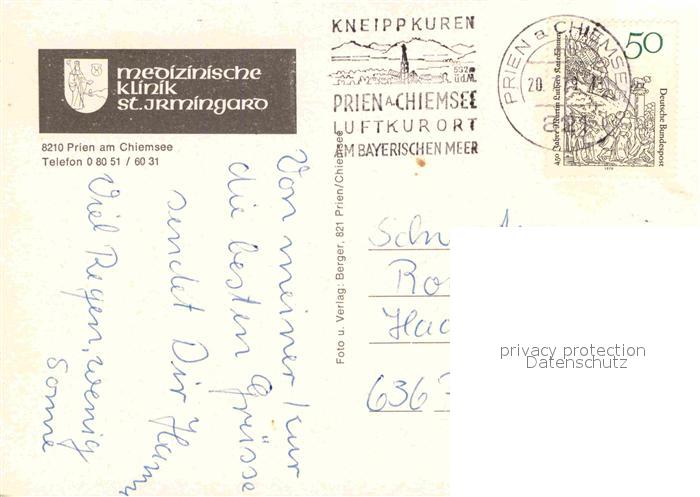 medizinische
klinik
st. irmingard
8210 Prien am Chiemsee
Telefon 0 80 51 / 60 31
KNEIPPKUREN
PRIEN A. CHIEMSEE
LUFTKURORT
AM BAYERISCHEN MEER
PRIEN a CHIEMSEE
20.
821
50
Deutsche Bundespost
450 Jahre Martin Luthers Katechismus
1979
Foto u. Verlag: Berger, 821 Prien/Chiemsee
Von meiner Kur
die besten Grüsse
sendet Dir
Viel Regen, wenig
Sonne
6367
privacy protection
Datenschutz